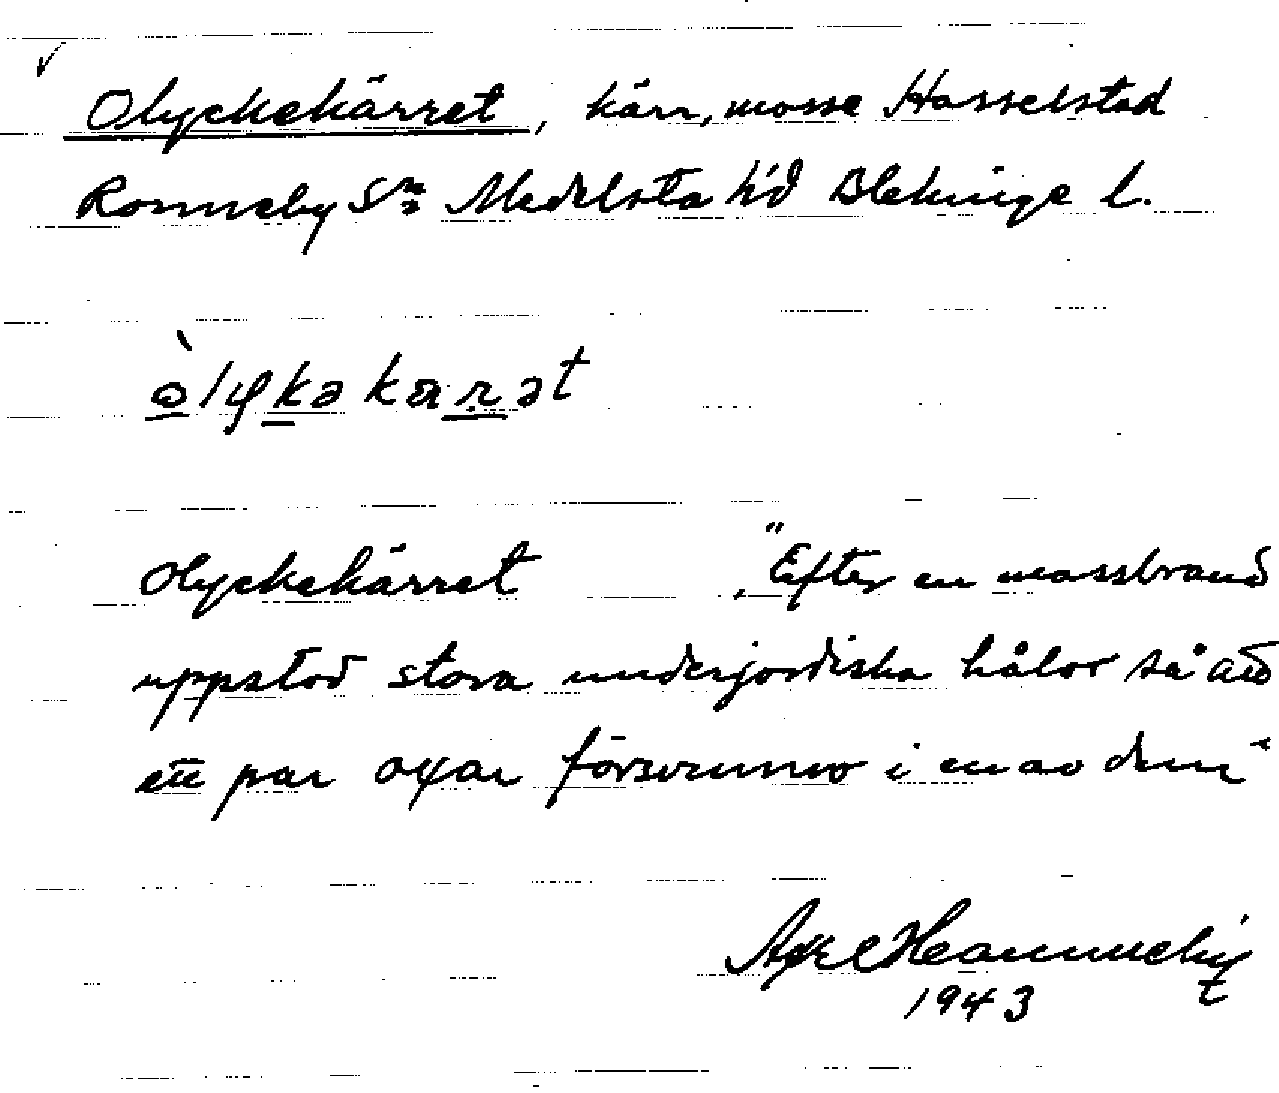 Olyckekärret, kärr, mosse Hasselstad
Ronneby Sn Medelsta h'd Blekinge l.
òlykəkärət
Olyckekärret "Efter en mossbrand
uppstod stora underjordiska hålor så att
ett par oxar försvunno i en av dem"
Axel
1943